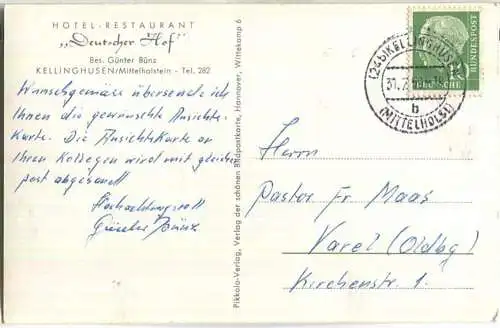 HOTEL-RESTAURANT
„Deutscher Hof"
Bes. Günter Bünz
KELLINGHUSEN/Mittelholstein - Tel. 282
Wunschgemäss übersende ich
Ihnen die gewünschte Ansichts-
Karte. Die Ansichtskarte an
Ihren Kollegen wird mit gleicher
Post abgesandt
Hochachtungsvoll
Günter Bünz
Pikkolo-Verlag, Verlag der schönen Bildpostkarte, Hannover, Wittekamp 6
(24b) KELLINGHUSEN
31.7.
b
(MITTELHOLST)
DEUTSCHE
BUNDESPOST
Herrn
Pastor Fr Maas
Varel (Oldbg)
Kirchenstr. 1.